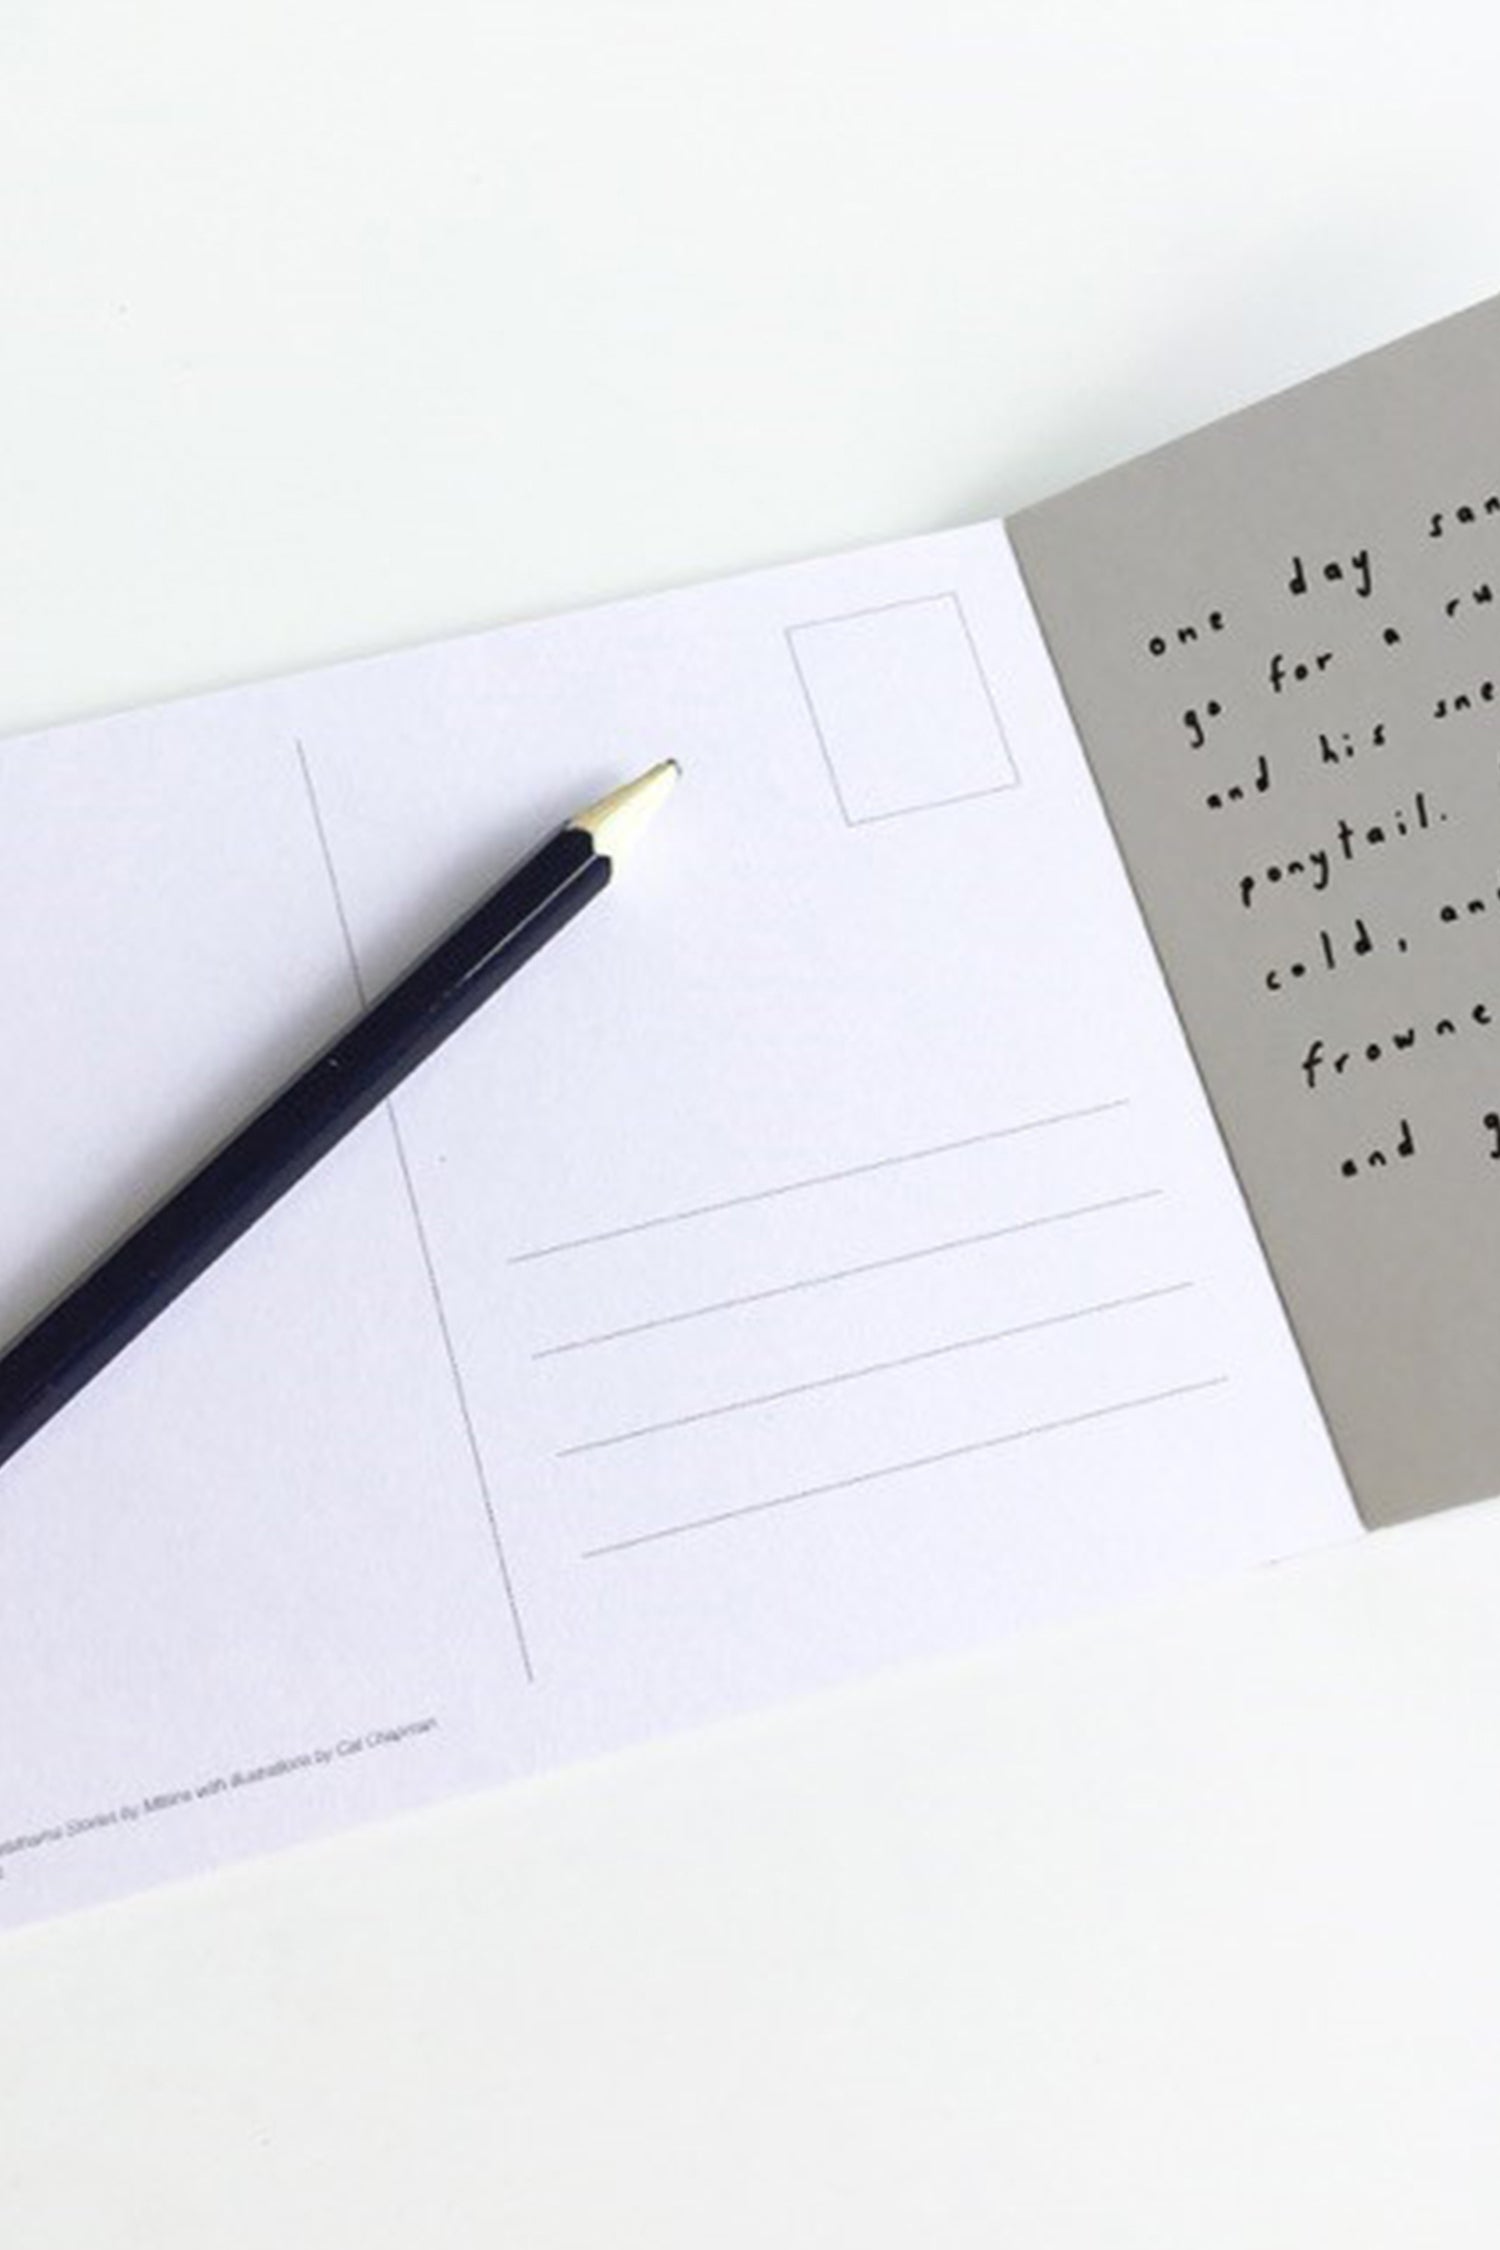 one day san
go for a ru
and his sne
ponytail.
cold, and
frowne
and g
Stories by with illustrations by Cat Chapman